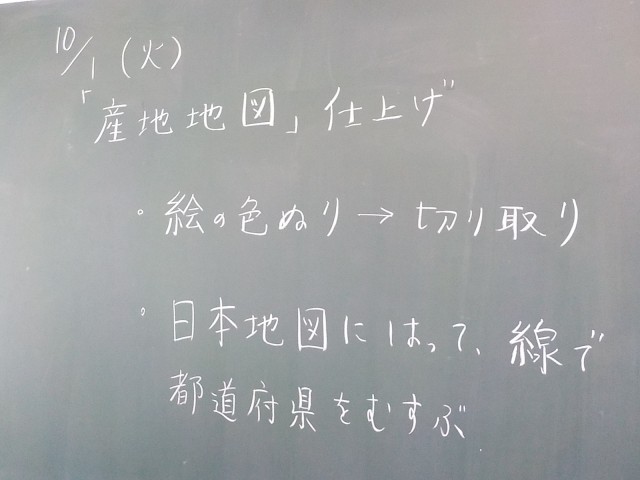 10/1(火)
「産地地図」仕上げ
・絵の色ぬり→切り取り
・日本地図にはって、線で
都道府県をむすぶ